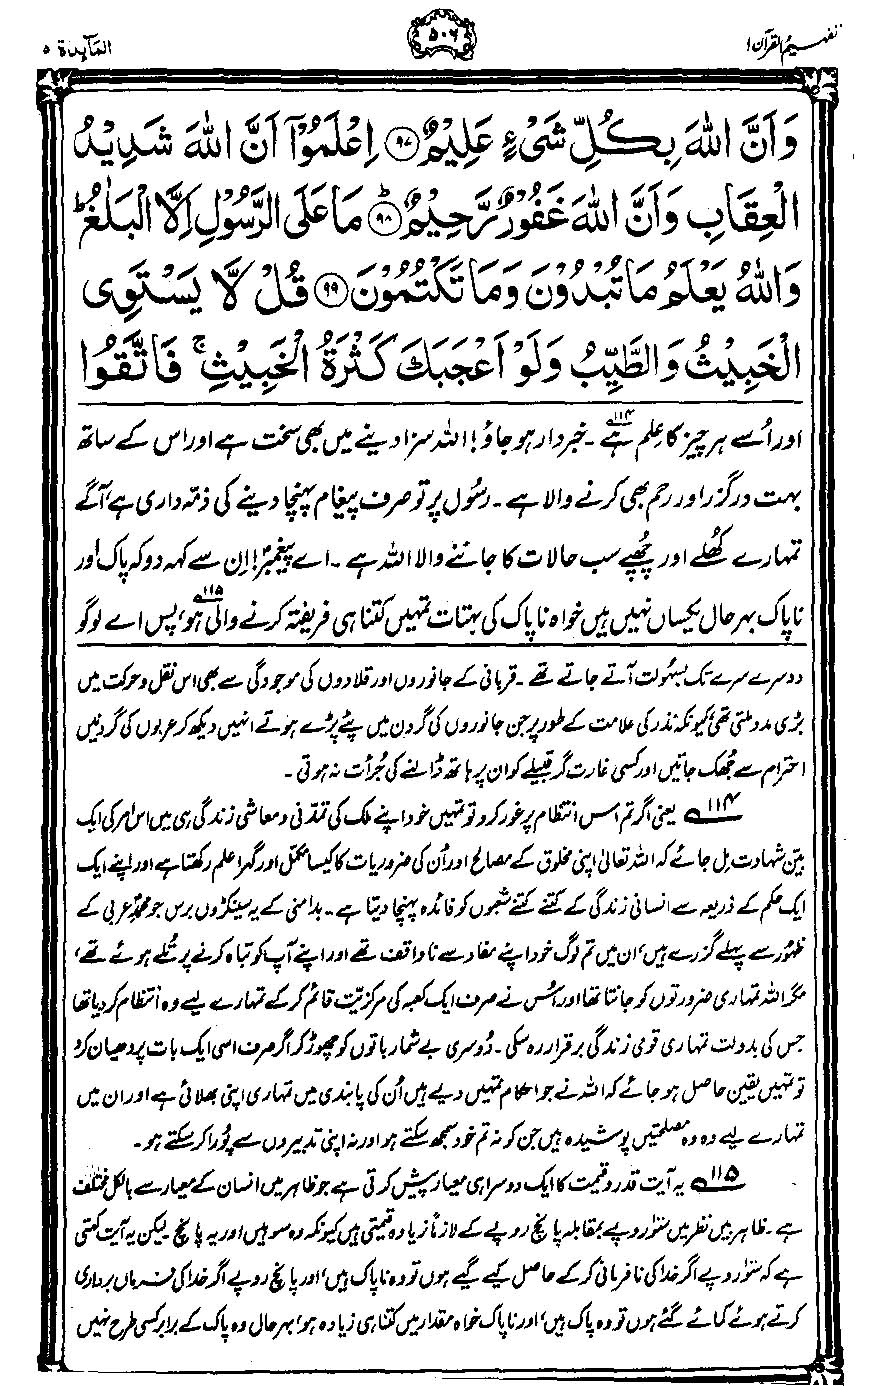 تفہیم القرآن ۱
۵۰۶
المآئدة ۵
وَاَنَّ اللّٰهَ بِكُلِّ شَیْءٍ عَلِیْمٌ ﴿۹۷﴾ اِعْلَمُوْۤا اَنَّ اللّٰهَ شَدِیْدُ
الْعِقَابِ وَاَنَّ اللّٰهَ غَفُوْرٌ رَّحِیْمٌ ﴿۹۸﴾ؕ مَا عَلَی الرَّسُوْلِ اِلَّا الْبَلٰغُ ؕ
وَاللّٰهُ یَعْلَمُ مَا تُبْدُوْنَ وَمَا تَكْتُمُوْنَ ﴿۹۹﴾ قُلْ لَّا یَسْتَوِی
الْخَبِیْثُ وَالطَّیِّبُ وَلَوْ اَعْجَبَكَ كَثْرَةُ الْخَبِیْثِ ۚ فَاتَّقُوا
اور اُسے ہر چیز کا علم ہے۱۱۴۔ خبردار ہو جاؤ! اللہ سزا دینے میں بھی سخت ہے اور اس کے ساتھ
بہت درگزر اور رحم بھی کرنے والا ہے۔ رسول پر تو صرف پیغام پہنچا دینے کی ذمّہ داری ہے، آگے
تمہارے کھُلے اور چھُپے سب حالات کا جاننے والا اللہ ہے۔ اے پیغمبرؐ! اِن سے کہہ دو کہ پاک اور
ناپاک بہرحال یکساں نہیں ہیں خواہ ناپاک کی بہتات تمہیں کتنا ہی فریفتہ کرنے والی ہو۱۱۵، پس اے لوگو
دوسرے سرے تک بسہُولت آتے جاتے تھے۔ قربانی کے جانوروں اور قلادوں کی موجودگی سے بھی اس نقل و حرکت میں
بڑی مدد ملتی تھی، کیونکہ نذر کی علامت کے طور پر جن جانوروں کی گردن میں پٹے پڑے ہوتے انہیں دیکھ کر عربوں کی گردنیں
احترام سے جھُک جاتیں اور کسی غارت گر قبیلے کو ان پر ہاتھ ڈالنے کی جُرأت نہ ہوتی۔
۱۱۴ یعنی اگر تم اس انتظام پر غور کرو تو تمہیں خود اپنے ملک کی تمدّنی و معاشی زندگی ہی میں اس امر کی ایک
بیّن شہادت مل جائے کہ اللہ تعالیٰ اپنی مخلوق کے مصالح اور اُن کی ضروریات کا کیسا مکمّل اور گہرا علم رکھتا ہے اور اپنے ایک
ایک حکم کے ذریعہ سے انسانی زندگی کے کتنے کتنے شعبوں کو فائدہ پہنچا دیتا ہے۔ بدامنی کے یہ سینکڑوں برس جو محمّدِ عربی کے
ظہُور سے پہلے گزرے ہیں، ان میں تم لوگ خود اپنے مفاد سے ناواقف تھے اور اپنے آپ کو تباہ کرنے پر تُلے ہوئے تھے،
مگر اللہ تمہاری ضرورتوں کو جانتا تھا اور اُس نے صرف ایک کعبہ کی مرکزیّت قائم کر کے تمہارے لیے وہ انتظام کر دیا تھا
جس کی بدولت تمہاری قومی زندگی برقرار رہ سکی۔ دُوسری بے شمار باتوں کو چھوڑ کر اگر صرف اسی ایک بات پر دھیان کرو
تو تمہیں یقین حاصل ہو جائے کہ اللہ نے جو احکام تمہیں دیے ہیں اُن کی پابندی میں تمہاری اپنی بھلائی ہے اور ان میں
تمہارے لیے وہ وہ مصلحتیں پوشیدہ ہیں جن کو نہ تم خود سمجھ سکتے ہو اور نہ اپنی تدبیروں سے پُورا کر سکتے ہو۔
۱۱۵ یہ آیت قدر و قیمت کا ایک دوسرا ہی معیار پیش کرتی ہے جو ظاہر بیں انسان کے معیار سے بالکل مختلف
ہے۔ ظاہر بیں نظر میں سَو روپے بمقابلہ پانچ روپے کے لازماً زیادہ قیمتی ہیں کیونکہ وہ سو ہیں اور یہ پانچ۔ لیکن یہ آیت کہتی
ہے کہ سَو روپے اگر خدا کی نافرمانی کر کے حاصل کیے گئے ہوں تو وہ ناپاک ہیں، اور پانچ روپے اگر خدا کی فرماں برداری
کرتے ہوئے کمائے گئے ہوں تو وہ پاک ہیں، اور ناپاک خواہ مقدار میں کتنا ہی زیادہ ہو، بہرحال وہ پاک کے برابر کسی طرح نہیں